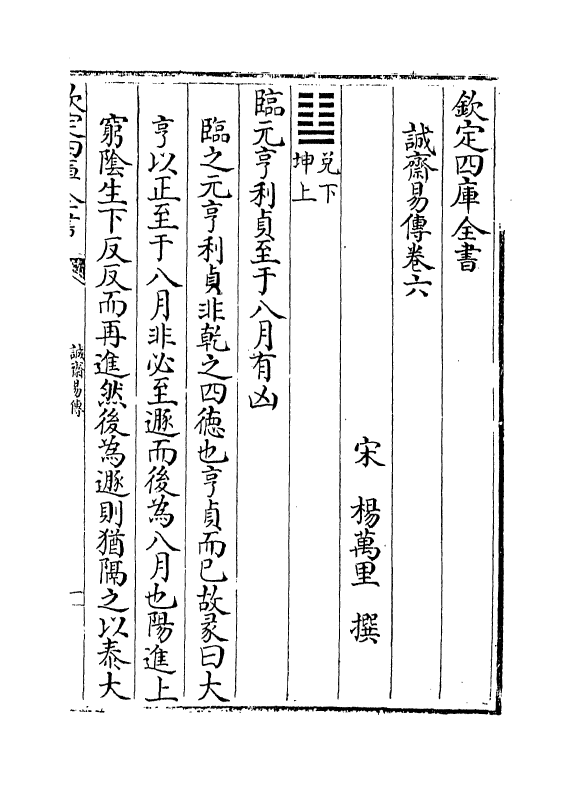 欽定四庫全書
誠齋易傳卷六
宋 楊萬里 撰
兌下
坤上
臨元亨利貞至于八月有凶
臨之元亨利貞非乾之四徳也亨貞而已故彖曰大
亨以正至于八月非必至遯而後為八月也陽進上
窮陰生下反反而再進然後為遯則猶隔之以泰大
欽定四庫全書
誠齋易傳
一